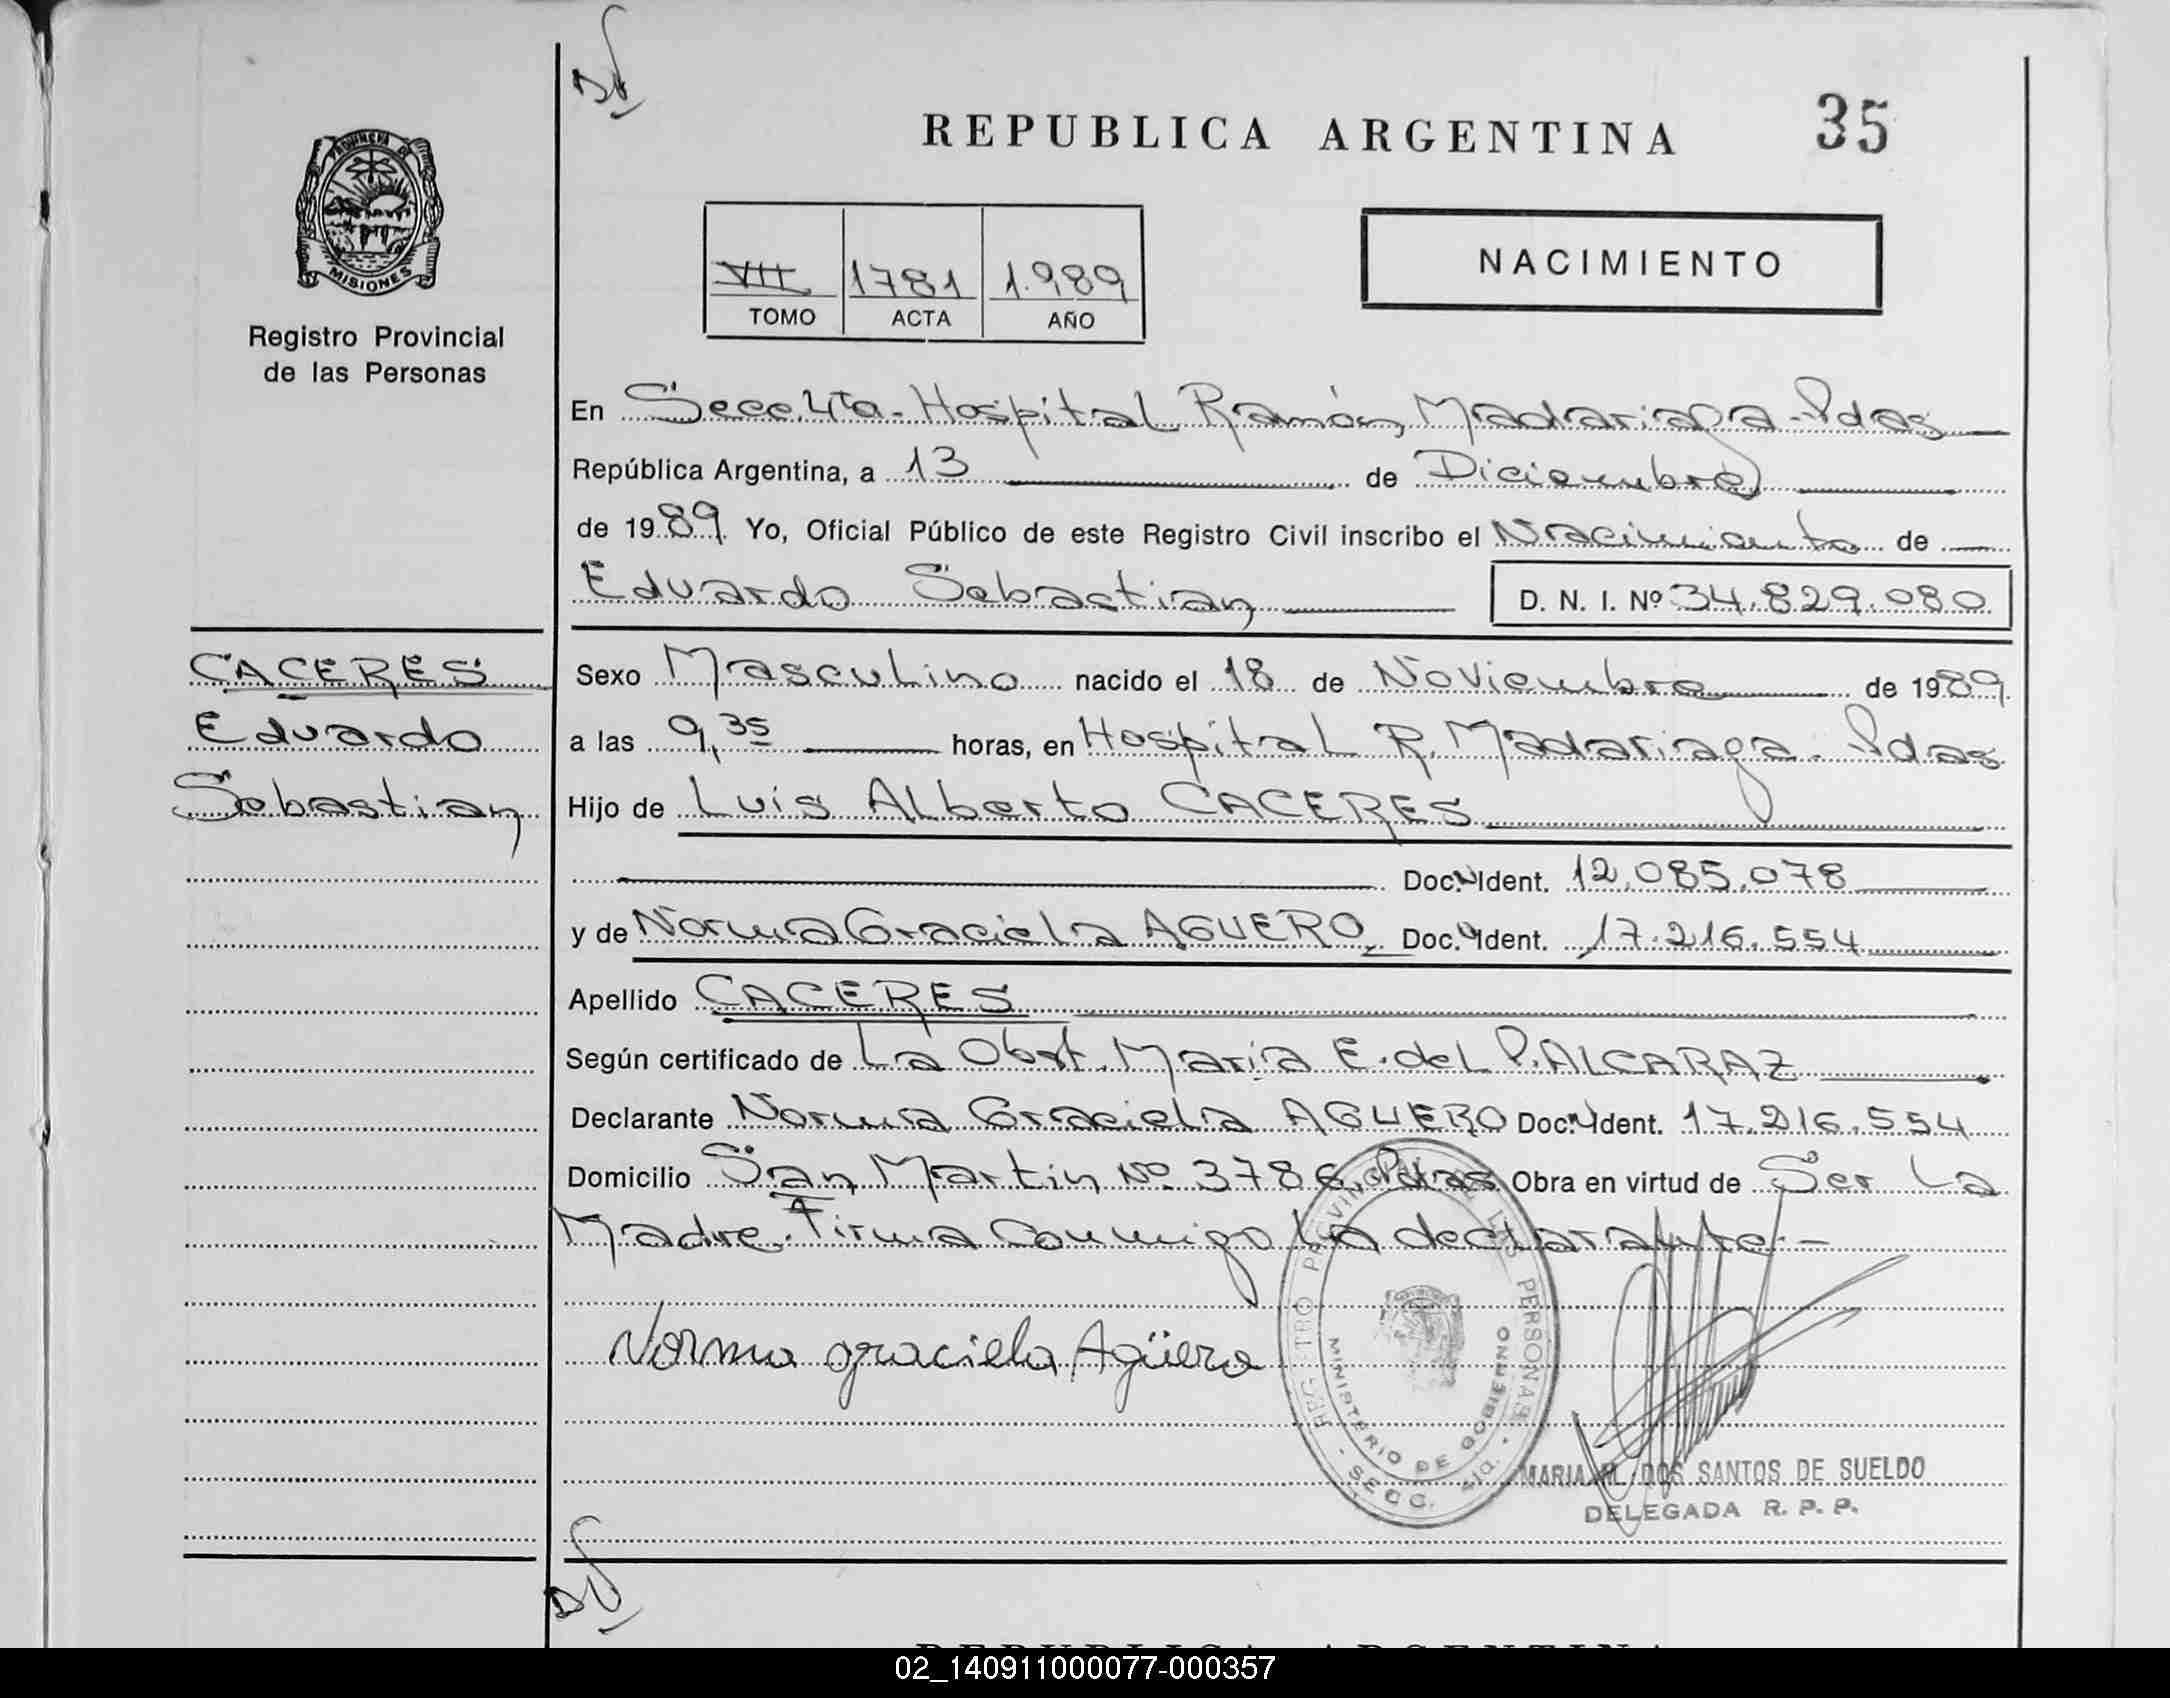 REPUBLICA ARGENTINA
35
PROVINCIA DE
MISIONES
Registro Provincial
de las Personas
VII 1781 1.989
TOMO ACTA AÑO
NACIMIENTO
En Secc. 4ta - Hospital Ramón Madariaga - Pdas
República Argentina, a 13 de Diciembre
de 1989. Yo, Oficial Público de este Registro Civil inscribo el Nacimiento de
Eduardo Sebastian D. N. I. Nº 34.829.080
CACERES
Eduardo
Sebastian
Sexo Masculino nacido el 18 de Noviembre de 1989
a las 9,35 horas, en Hospital R. Madariaga - Pdas
Hijo de Luis Alberto CACERES
Doc. Ident. 12.085.078
y de Norma Graciela AGUERO Doc. Ident. 17.216.554
Apellido CACERES
Según certificado de La Obst. María E. del P. ALCARAZ
Declarante Norma Graciela AGUERO Doc. Ident. 17.216.554
Domicilio San Martin Nº 3786, Pdas Obra en virtud de Ser La
Madre. Firma Conmigo La declarante.-
Norma graciela Agüero
REGISTRO PROVINCIAL DE LAS PERSONAS
MINISTERIO DE GOBIERNO
- SECC. 4ta. -
MARIA M. DOS SANTOS DE SUELDO
DELEGADA R. P. P.
REPUBLICA ARGENTINA
02_140911000077-000357